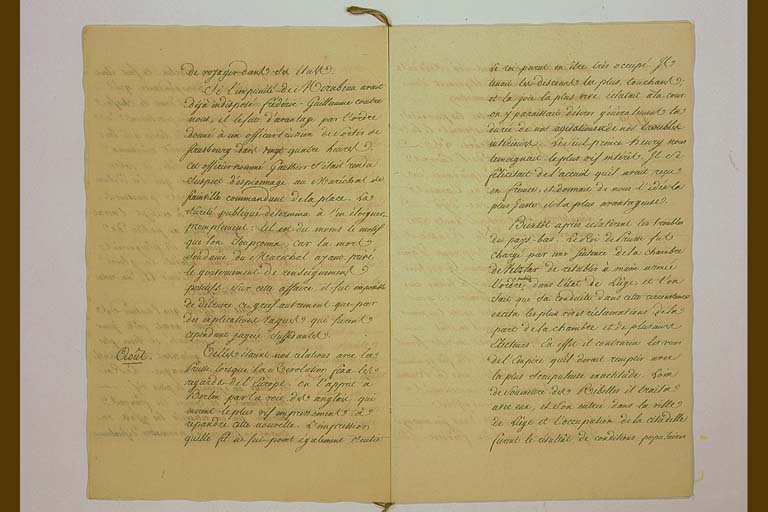 de voyager dans ses états.
Si l'impunité de Mirabeau avait
déjà indisposé frédéric-Guillaume contre
nous, il le fut d'avantage par l'ordre
donné à un officier Prussien de sortir de
strasbourg dans vingt quatre heures.
cet officier nommé s'était rendu
suspect d'espionnage au Maréchal de
stainville commandant de la place. La
sûreté publique détermina à l'en éloigner
promptement: tel en du moins le motif
que l'on soupçonna, car la mort
soudaine du Maréchal ayant privé
le gouvernement de renseignements
positifs sur cette affaire, il fut impossible
de détruire ce grief autrement que par
des explications vagues qui furent
cependant jugées suffisantes.
Août.
Telles étaient nos relations avec la
Prusse lorsque la Révolution fixa les
regards de l'Europe. on l'apprit à
Berlin par la voie des anglais qui
mirent le plus vif empressement à
répandre cette nouvelle. L'impression
qu'elle fit ne fut point également sentie
Le roi parut en être très occupé. Il
tenait les discours les plus touchants,
et la joie la plus vive éclatait à la cour.
on y paraissait désirer généralement la
durée de nos agitations et de nos troubles
intérieurs. Le seul prince henry nous
témoignait le plus vif intérêt. Il se
félicitait de l'accueil qu'il avait reçu
en france, et donnait de nous l'idée la
plus juste et la plus avantageuse.
Bientôt après éclatèrent les troubles
des pays-bas. Le Roi de Prusse fut
chargé par une sentence de la chambre
de Vetzlar de rétablir à main armée
l'ordre public dans l'état de Liège et l'on
sait que sa conduite dans cette circonstance
excita les plus vives réclamations de la
part de la chambre et de plusieurs
Electeurs. En effet il contraria les vues
de l'Empire qu'il devait remplir avec
la plus scrupuleuse exactitude. Loin
de soumettre des Rebelles il traita
avec eux, et son entrée dans la ville
de Liège et l'occupation de la citadelle
furent le résultat de conditions